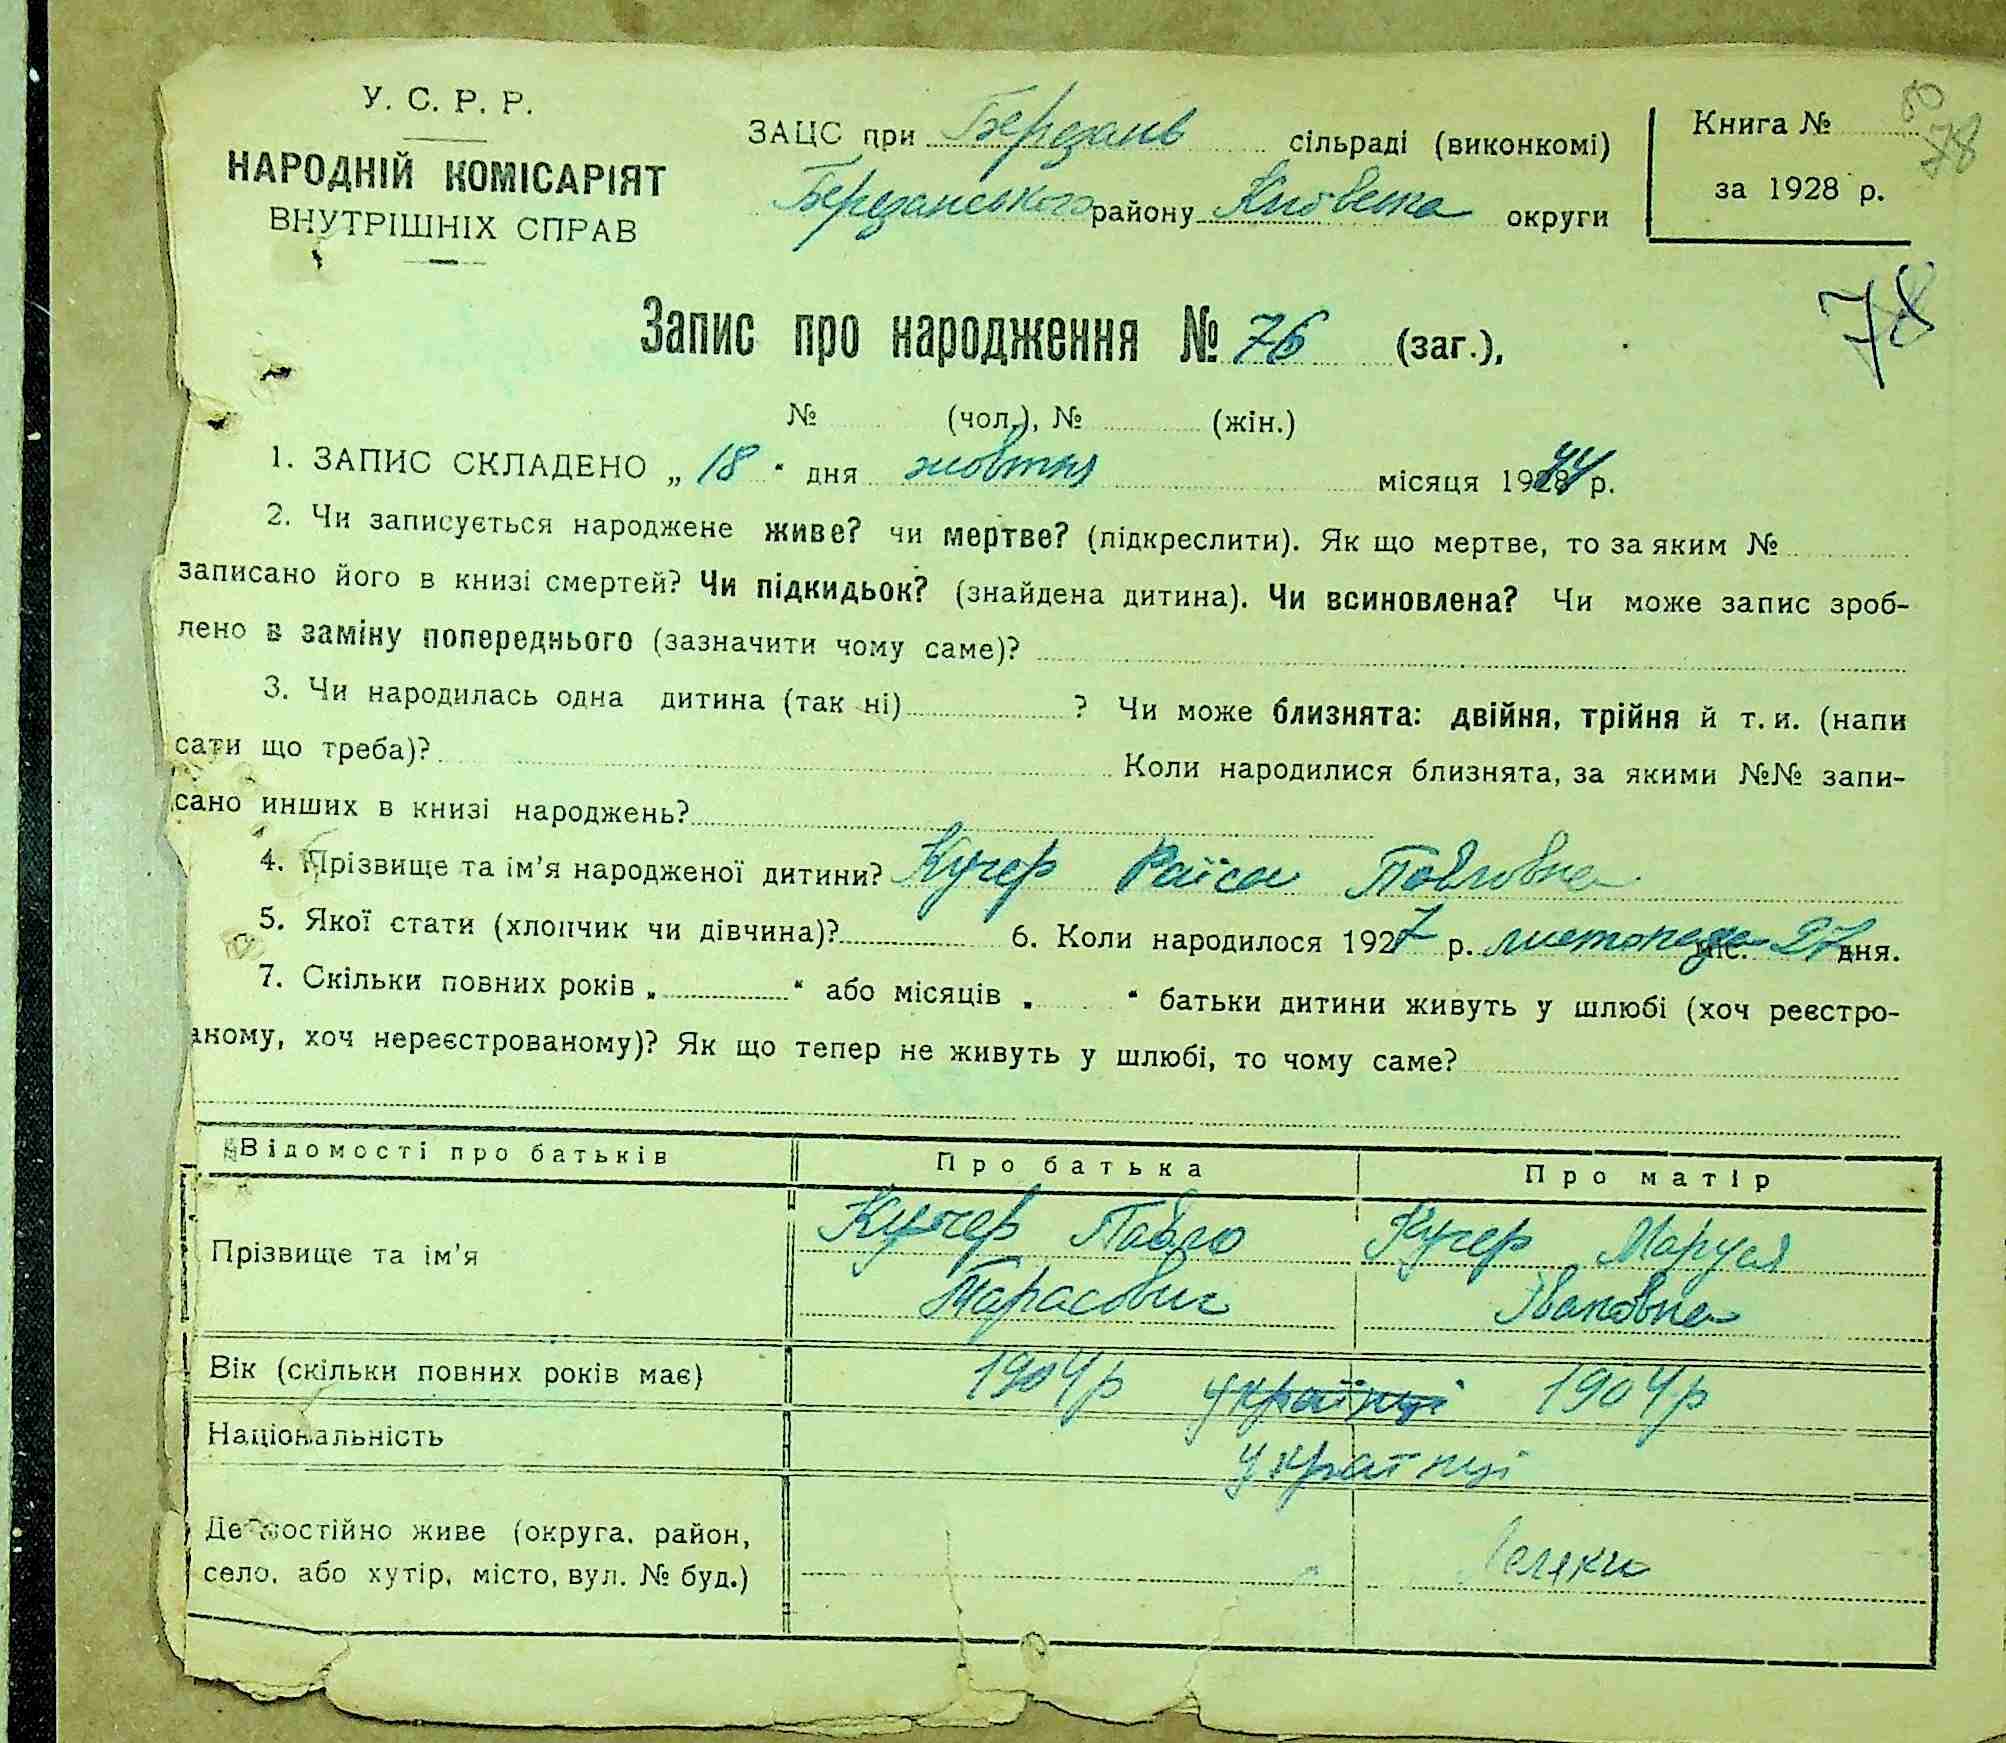 У. С. Р. Р.
НАРОДНІЙ КОМІСАРІЯТ
ВНУТРІШНІХ СПРАВ
ЗАЦС при Березань сільраді (виконкомі)
Березанського району Київська округи
Книга №
за 1928 р.
80
78
78
Запис про народження № 76 (заг.),
№ (чол.), № (жін.)
1. ЗАПИС СКЛАДЕНО „ 18 “ дня жовтня місяця 1944 р.
2. Чи записується народжене живе? чи мертве? (підкреслити). Як що мертве, то за яким №
записано його в книзі смертей? Чи підкидьок? (знайдена дитина). Чи всиновлена? Чи може запис зроб-
лено в заміну попереднього (зазначити чому саме)?
3. Чи народилась одна дитина (так ні) ? Чи може близнята: двійня, трійня й т. и. (напи
сати що треба)? Коли народилися близнята, за якими №№ запи-
сано инших в книзі народжень?
4. Прізвище та ім’я народженої дитини? Кучер Раїса Павловна
5. Якої стати (хлопчик чи дівчина)? 6. Коли народилося 1927 р. листопада міс. 27 дня.
7. Скільки повних років „ “ або місяців „ “ батьки дитини живуть у шлюбі (хоч реєстро-
аному, хоч нереєстрованому)? Як що тепер не живуть у шлюбі, то чому саме?
Відомості про батьків Про батька Про матір
Прізвище та ім’я Кучер Павло Кучер Маруся
Тарасович Івановна
Вік (скільки повних років має) 1904р українці 1904р
Національність українці
Де постійно живе (округа, район,
село, або хутір, місто, вул. № буд.) Леляки